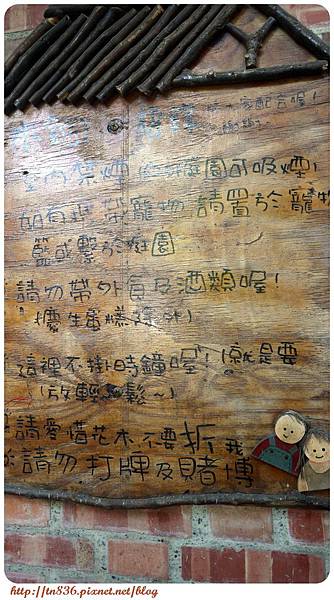 謝謝
室內禁煙(   庭園可吸煙)
如有攜帶寵物 請置於寵物
籃或繫於庭園
請勿帶外食及酒類喔!
(慶生蛋糕除外)
這裡不掛時鐘喔!(就是要
放輕鬆~)
請愛惜花木,不要折我
請勿打牌及賭博
http://tn836.pixnet.net/blog